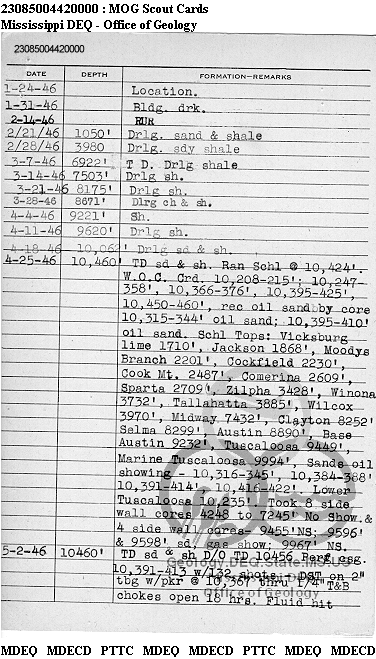 23085004420000 : MOG Scout Cards
Mississippi DEQ - Office of Geology
23085004420000
DATE DEPTH FORMATION—REMARKS
1-24-46 Location.
1-31-46 Bldg. drk.
2-14-46 RUR
2/21/46 1050' Drlg. sand & shale
2/28/46 3980 Drlg. sdy shale
3-7-46 6922' T D. Drlg shale
3-14-46 7503' Drlg sh.
3-21-46 8175' Drlg sh.
3-28-46 8671' Dlrg ch & sh.
4-4-46 9221' Sh.
4-11-46 9620' Drlg sh.
4-18-46 10,062' Drlg sd & sh.
4-25-46 10,460' TD sd & sh. Ran Schl @ 10,424'.
W.O.C. Crd. 10,208-215'; 10,247-
358', 10,366-376', 10,395-425',
10,450-460', rec oil sand by core
10,315-344' oil sand; 10,395-410'
oil sand. Schl Tops: Vicksburg
lime 1710', Jackson 1868', Moodys
Branch 2201', Cockfield 2230',
Cook Mt. 2487', Comerina 2609',
Sparta 2709', Zilpha 3428', Winona
3732', Tallahatta 3885', Wilcox
3970', Midway 7432', Clayton 8252'
Selma 8299', Austin 8890', Base
Austin 9232', Tuscaloosa 9449',
Marine Tuscaloosa 9994', Sands oil
showing - 10,316-345', 10,384-388'
10,391-414', 10,416-422'. Lower
Tuscaloosa 10,235'. Took 8 side
wall cores 4248 to 7245' No Show.&
4 side wall cores- 9455'NS; 9596'
& 9598' sd, gas show; 9967' NS.
5-2-46 10460' TD sd & sh D/O TD 10456 Perf csg.
10,391-413 w/132 shots. DST on 2"
tbg w/pkr @ 10,367 thru 1/4" T&B
chokes open 16 hrs. Fluid hit
Geology.DEQ.State.MS.US
Office of Geology
MDEQ MDECD PTTC MDEQ MDECD PTTC MDEQ MDECD PTTC MDEQ MDECD